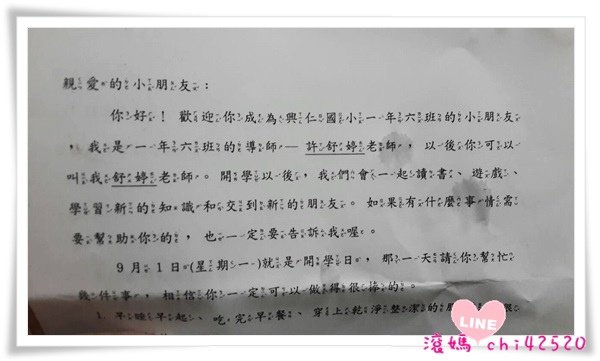 親愛的小朋友：
你好！歡迎你成為興仁國小一年六班的小朋友
，我是一年六班的導師—許舒婷老師，以後你可以
叫我舒婷老師。開學以後，我們會一起讀書、遊戲、
學習新的知識和交到新的朋友。如果有什麼事情需
要幫助你的，也一定要告訴我喔。
9月1日(星期一)就是開學日，那一天請你幫忙
幾件事，相信你一定可以做得很棒的。
1. 早睡早起、吃完早餐、穿上乾淨整潔的
LINE
滾媽 chi42520